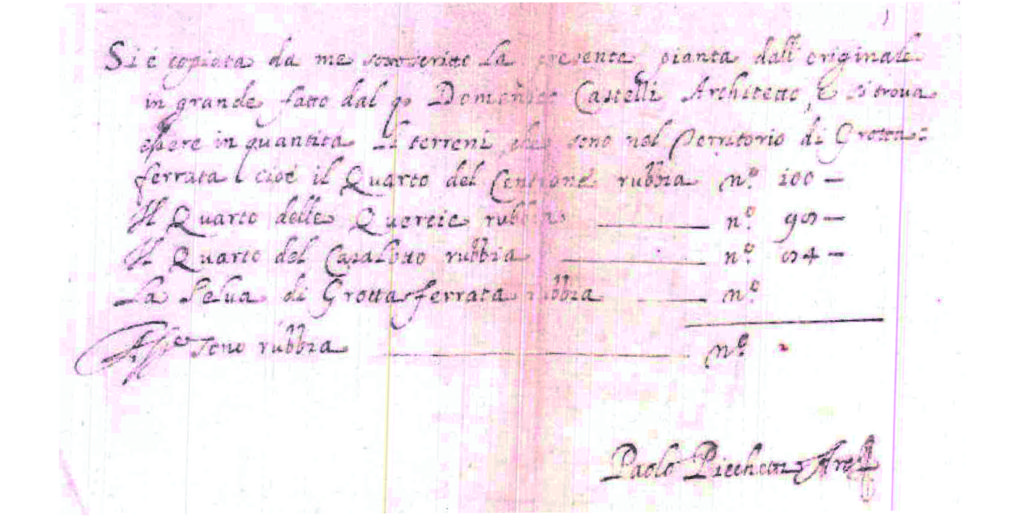 Si é copiata da me sottoscritto la presente pianta dall'originale
in grande fatto dal q. Domenico Castelli Architetto, E si trova
essere in quantita li terreni che sono nel Territorio di Grotta=
ferrata cioé il Quarto del Centrone rubbia n.º 100 —
Il Quarto delle Quercie rubbia n.º
Il Quarto del Casalotto rubbia n.º
La Selva di Grottaferrata rubbia n.º
sono rubbia n.º
Paolo Picchetti Arc